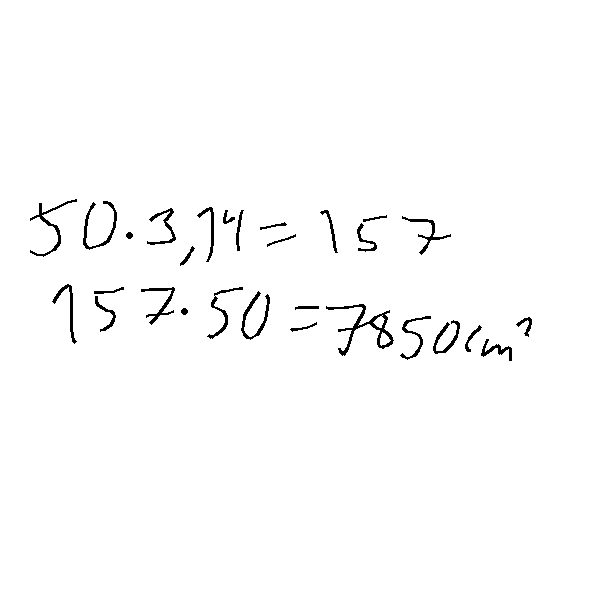 50·3,14=157
157·50=7850cm²